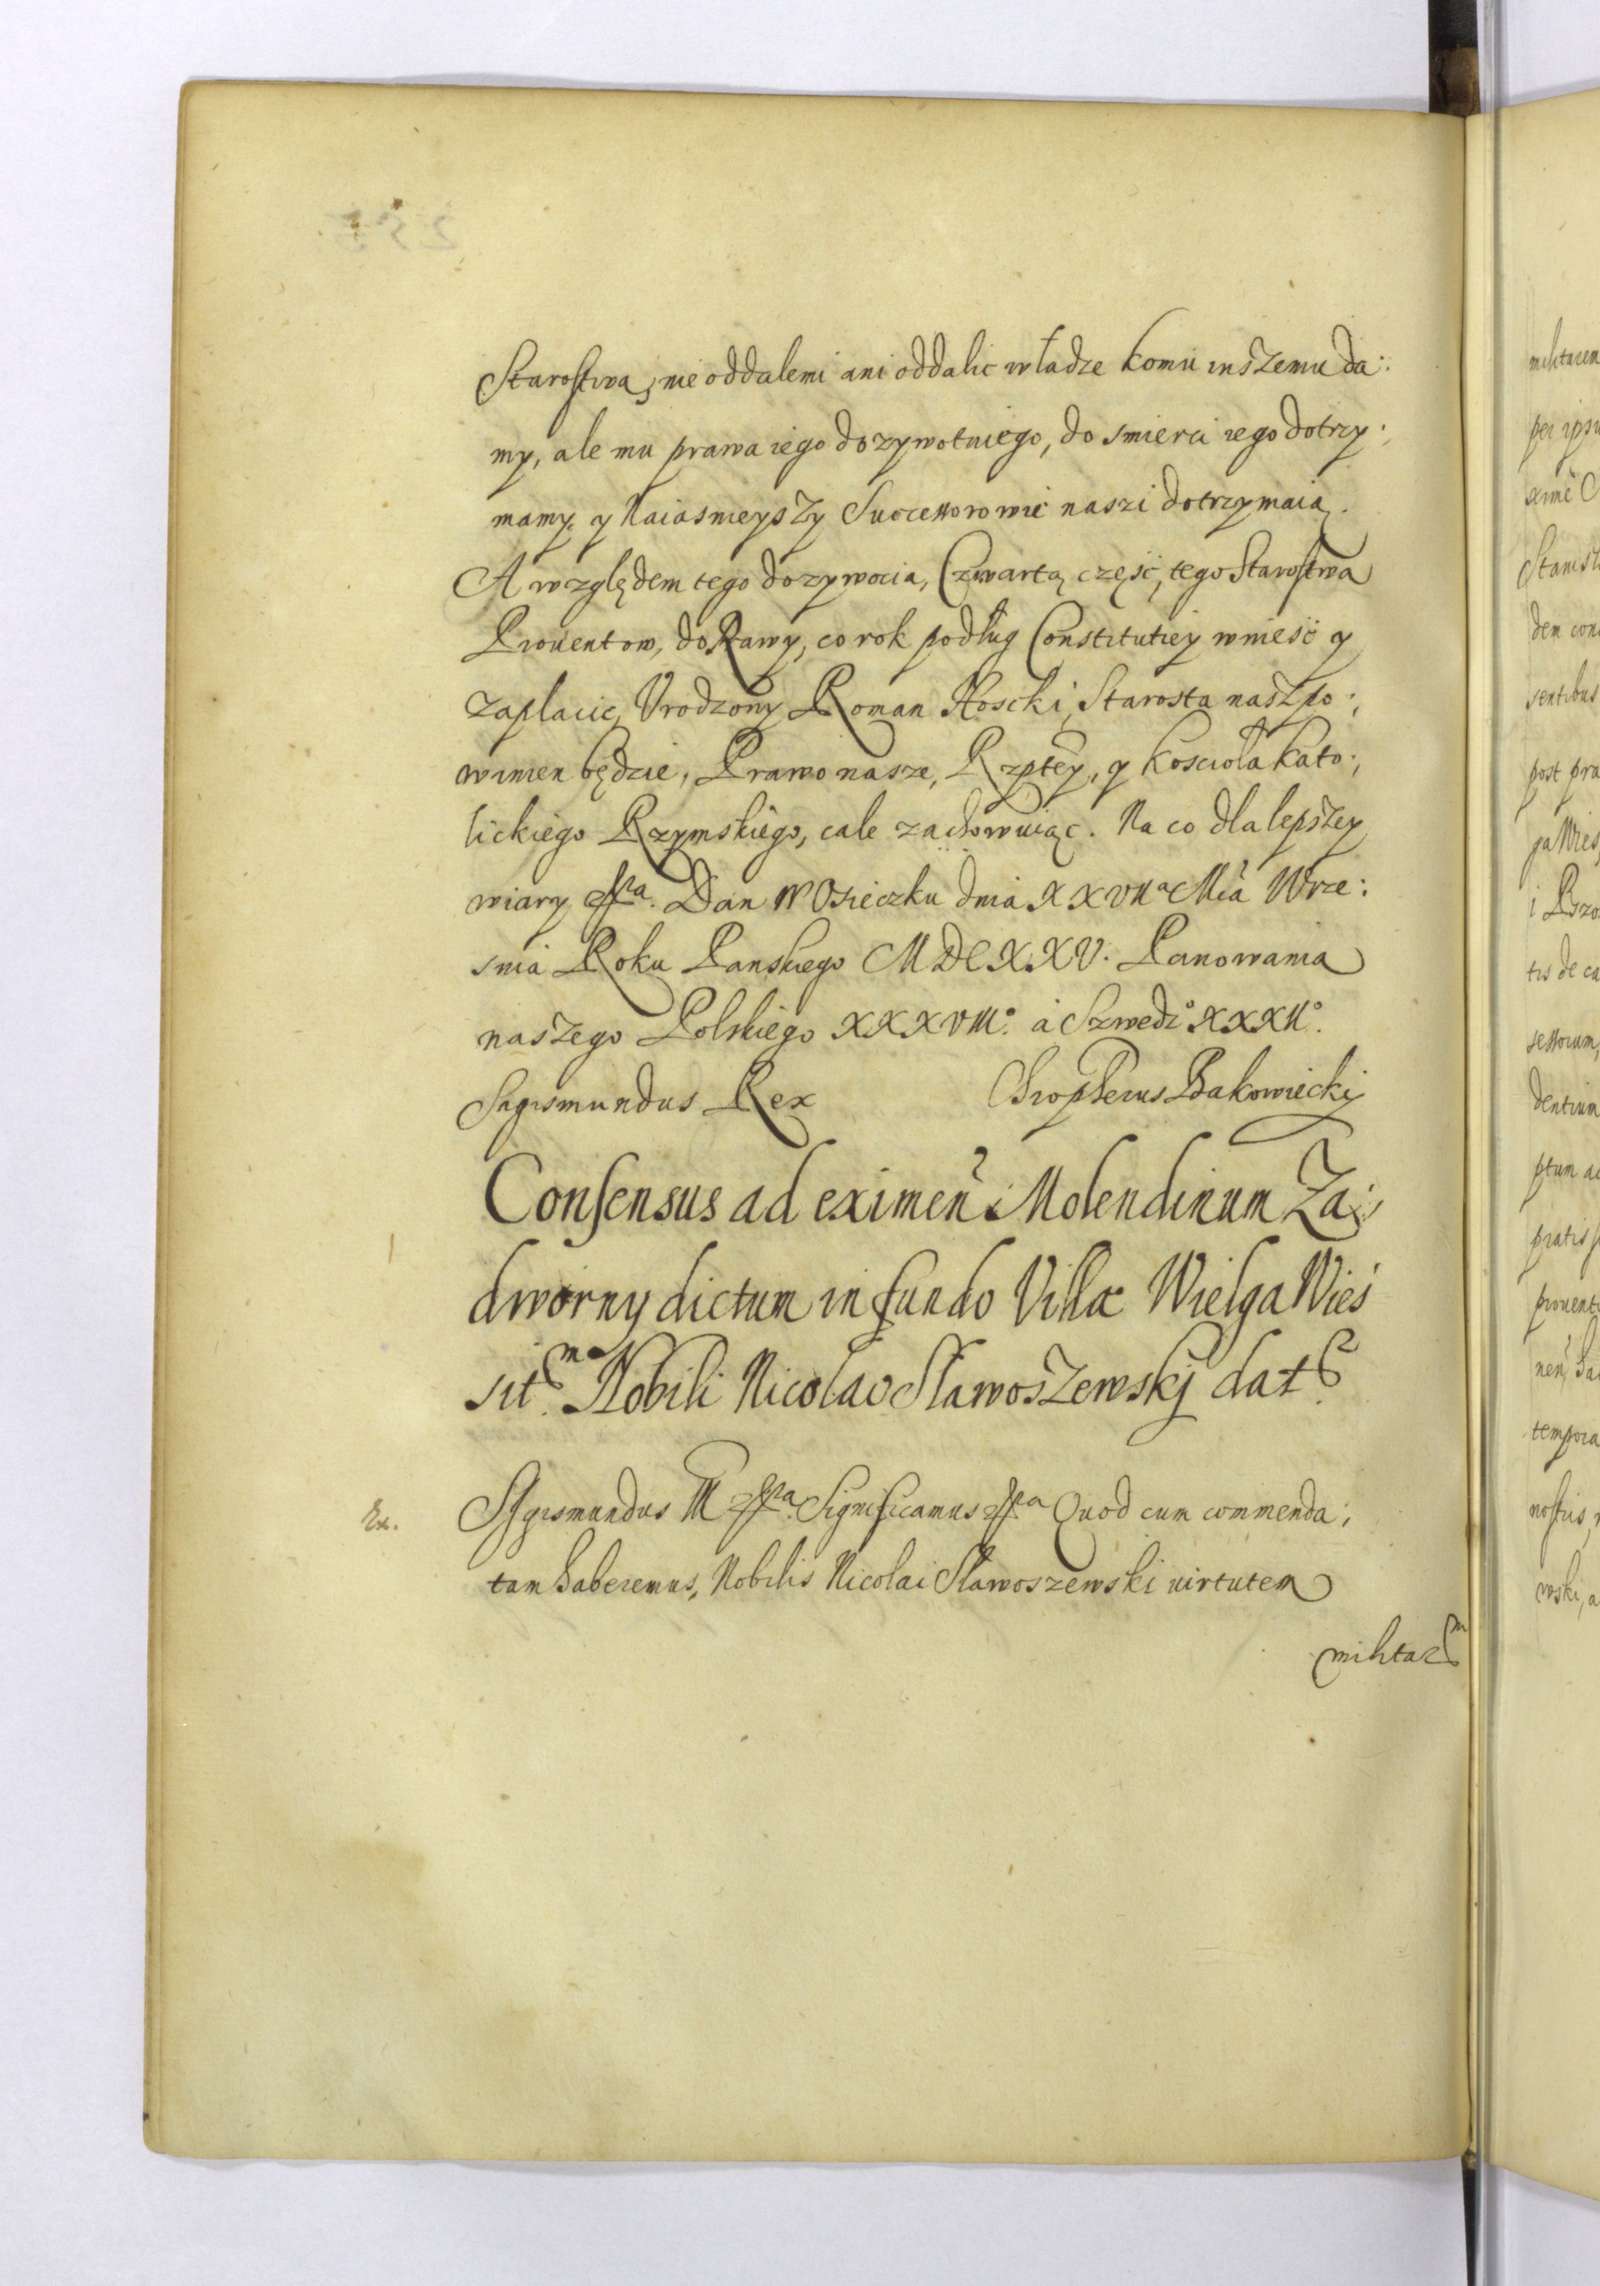 Starostwa, nie oddalemi ani oddalic władze komu inszemu da:
my, ale mu prawa iego dozywotniego, do smierci iego dotrzy:
mamy, y Naiasnieyszy Successorowie naszi dotrzymaią.
A względem tego dozywocia, Czwartą część, tego Starostwa
Prouentow, do Rawy, co rok podług Constitutiey wnieść y
zaplacic, Vrodzony Roman Hoscki, Starosta nasz po:
winien będzie, Prawo nasze, Rzptey, y kosciołá kato:
lickiego Rzymskiego, cale zachowuiąc. Na co dla lepszey
wiary Dan w Osieczku dnia XXVII Mca Wrze:
snia Roku Panskiego MDCXXV. Panowania
naszego Polskiego XXXVIIIº. á Szwedzº XXXIIº.
Sigismundus Rex Chropherus Bakowiecki
Consensus ad eximen Molendinum Za:
dworny dictum in fundo Villæ Wielga Wieś
sit Nobili Nicolao Sławoszewskj dat
Ex. Sigismundus III Significamus Quod cum commenda:
tam haberemus, Nobilis Nicolai Sławoszewski uirtutem
militar
militarem
per ipsu
Stanisl
den con
sentibus
post pra
ga Wies
tis de ca
sessorum,
dentium
ptum ad
pratis
prouent
tempora
nostris
wski, a